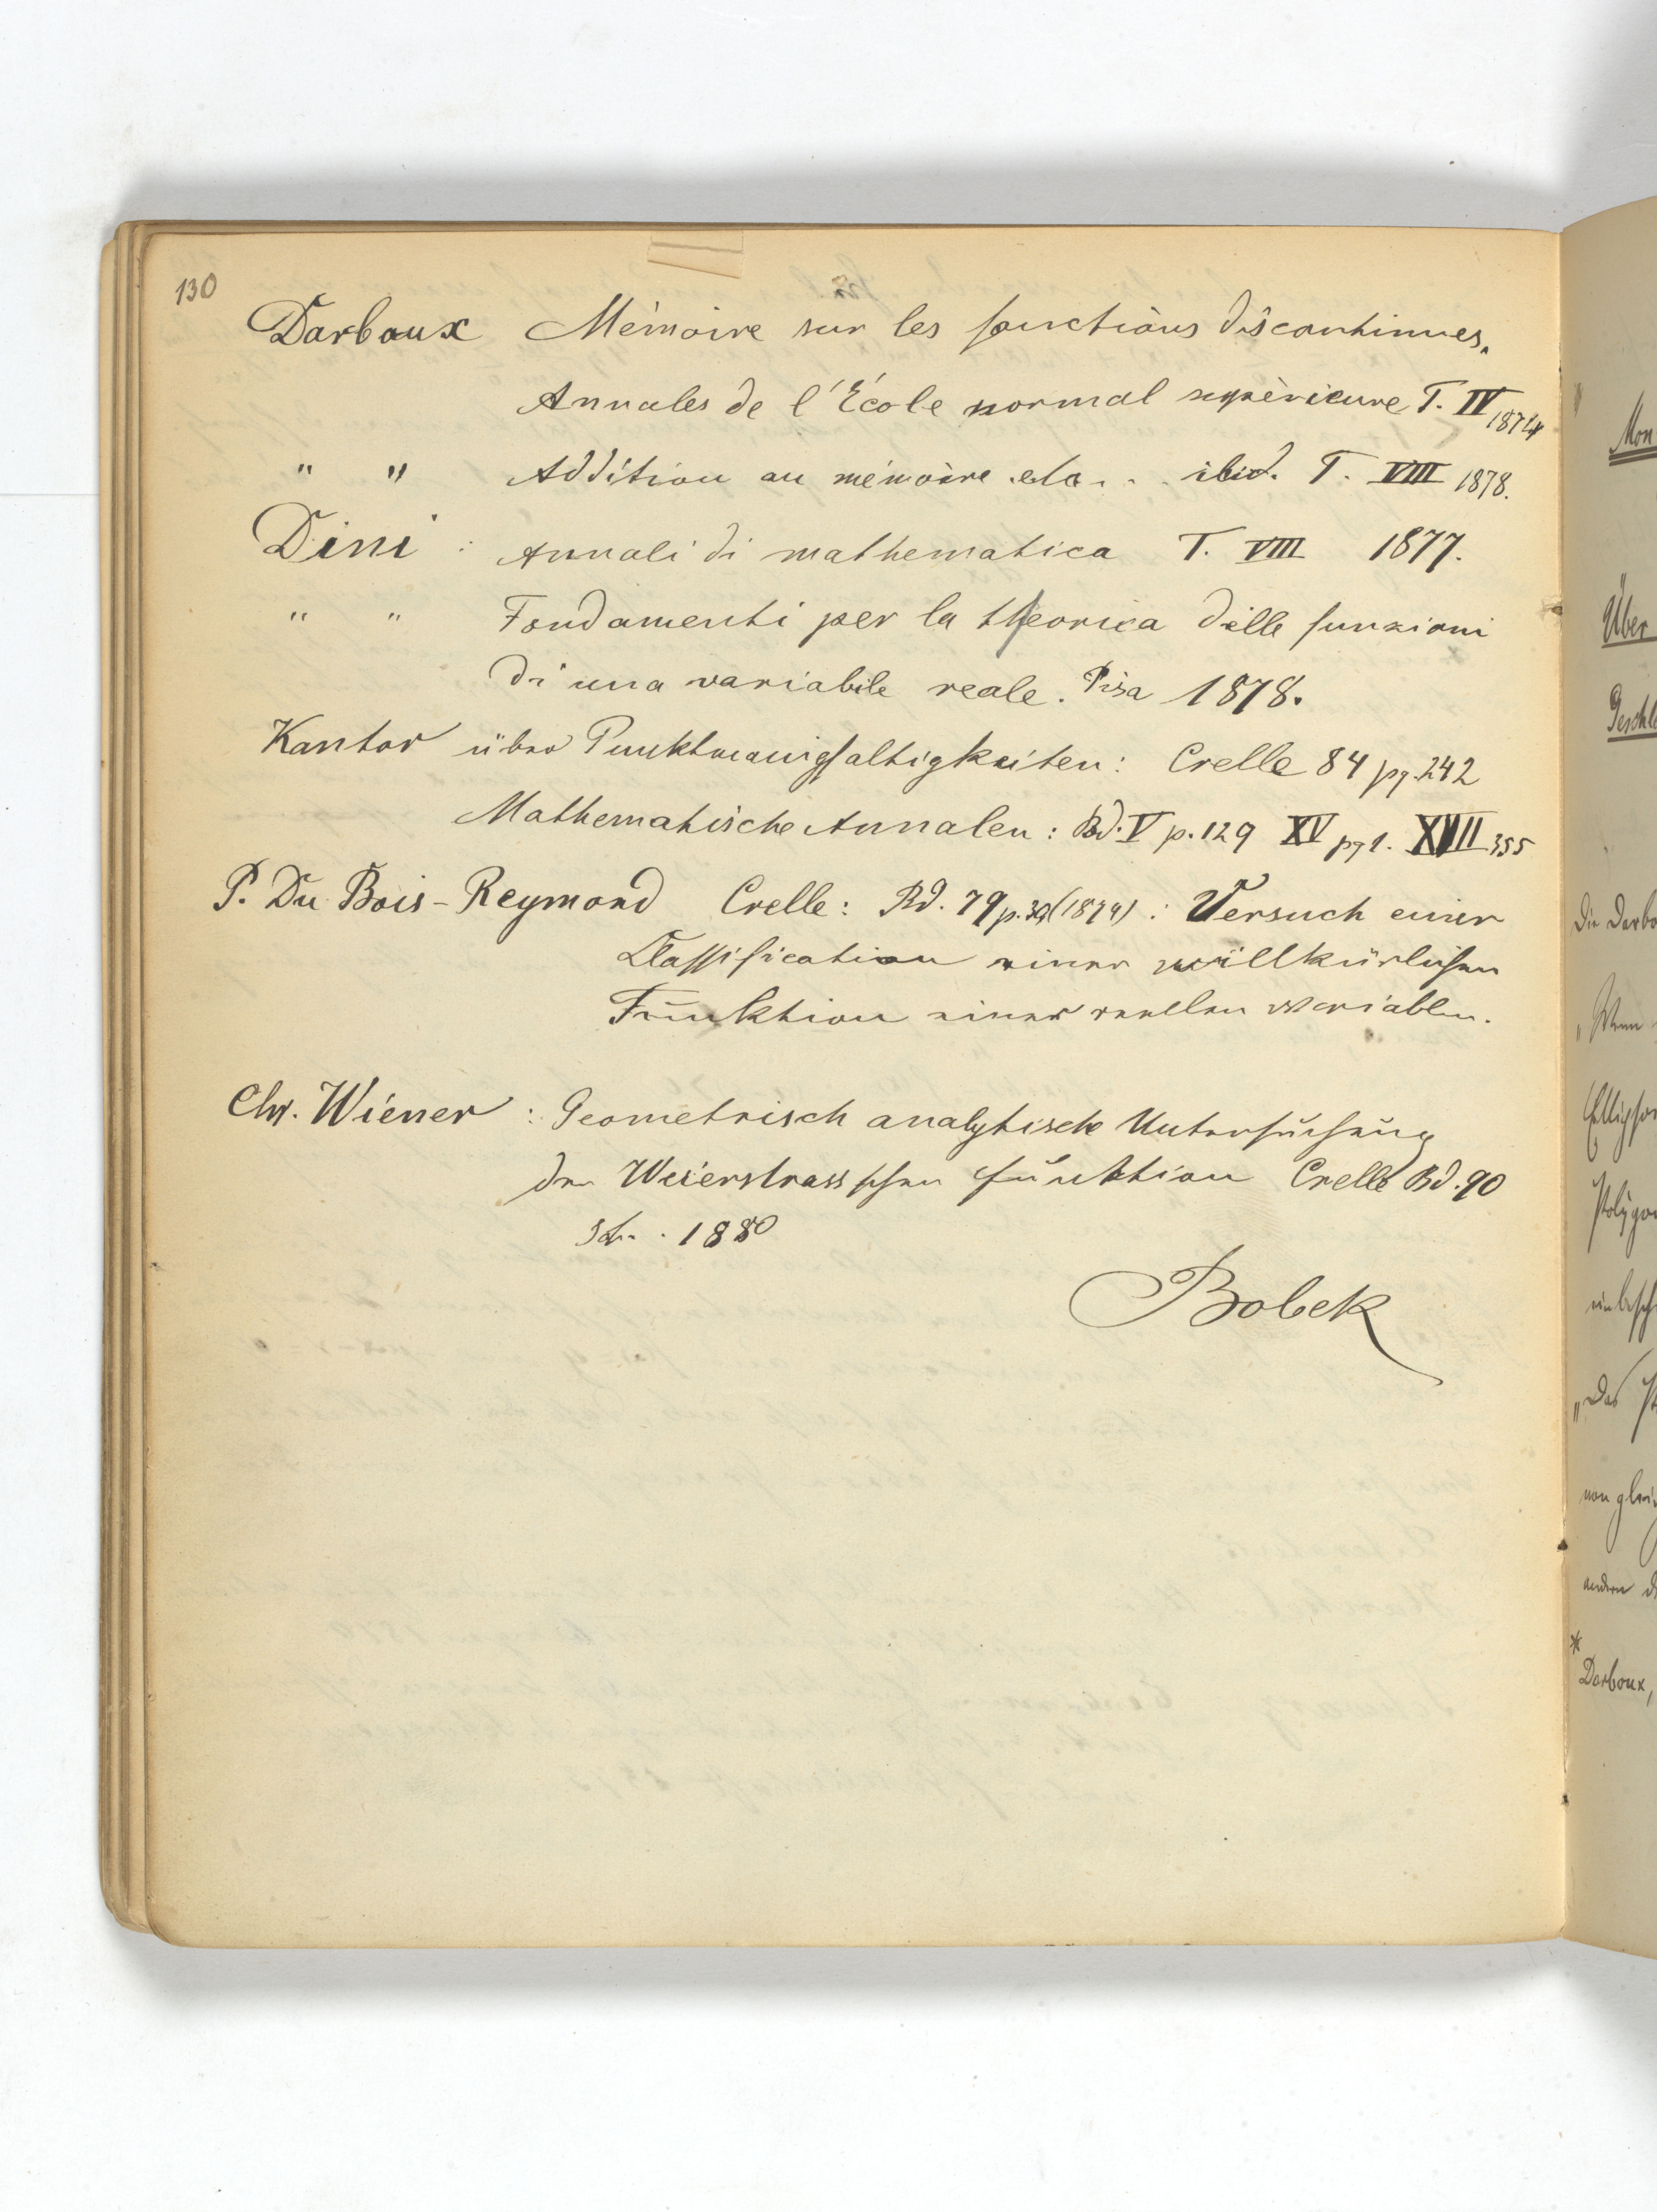 130
Darboux Mémoire sur les fonctions discontinues.
Annales de l'École normal supèrieure T. IV 1874
" " Addition au mémoire etc . . . ibid. T. VIII 1878.
Dini : Annali di mathematica T. VIII 1877.
" " Fondamenti per la theorica delle funzioni
di una variabile reale. Pisa 1878.
Kantor über Punktmanigfaltigkeiten: Crelle 84 pg. 242
Mathematische Annalen: Bd. V p. 129 XV pg 1. XVII 355
P. Du Bois-Reymond Crelle: Bd. 79 (1874) : Versuch einer
Classification einer willkürlichen
Funktion einer reellen Variablen.
Chr. Wiener : Geometrisch analytische Untersuchung
der Weierstrassschen Funktion Crelle Bd. 90
1880
Bobek
Mon
Über
Die Darbo
„Wenn
Ellipso
Polygon
„Das
von glei
andern
*
Darboux,